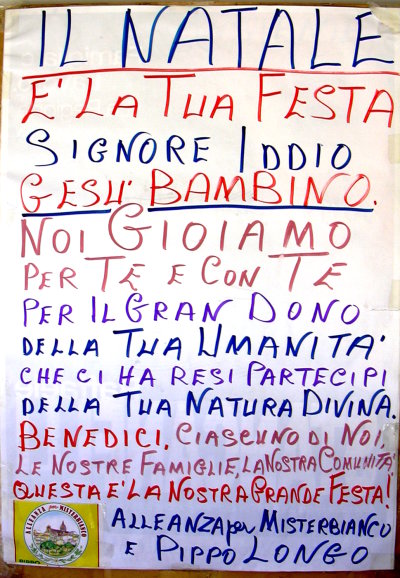 IL NATALE
E' LA TUA FESTA
SIGNORE IDDIO
GESU' BAMBINO.
NOI GIOIAMO
PER TE E CON TE
PER IL GRAN DONO
DELLA TUA UMANITA'
CHE CI HA RESI PARTECIPI
DELLA TUA NATURA DIVINA.
BENEDICI, CIASCUNO DI NOI,
LE NOSTRE FAMIGLIE, LA NOSTRA COMUNITA'
QUESTA E' LA NOSTRA GRANDE FESTA!
ALLEANZA per MISTERBIANCO
E PIPPO LONGO
ALLEANZA per MISTERBIANCO
PIPPO